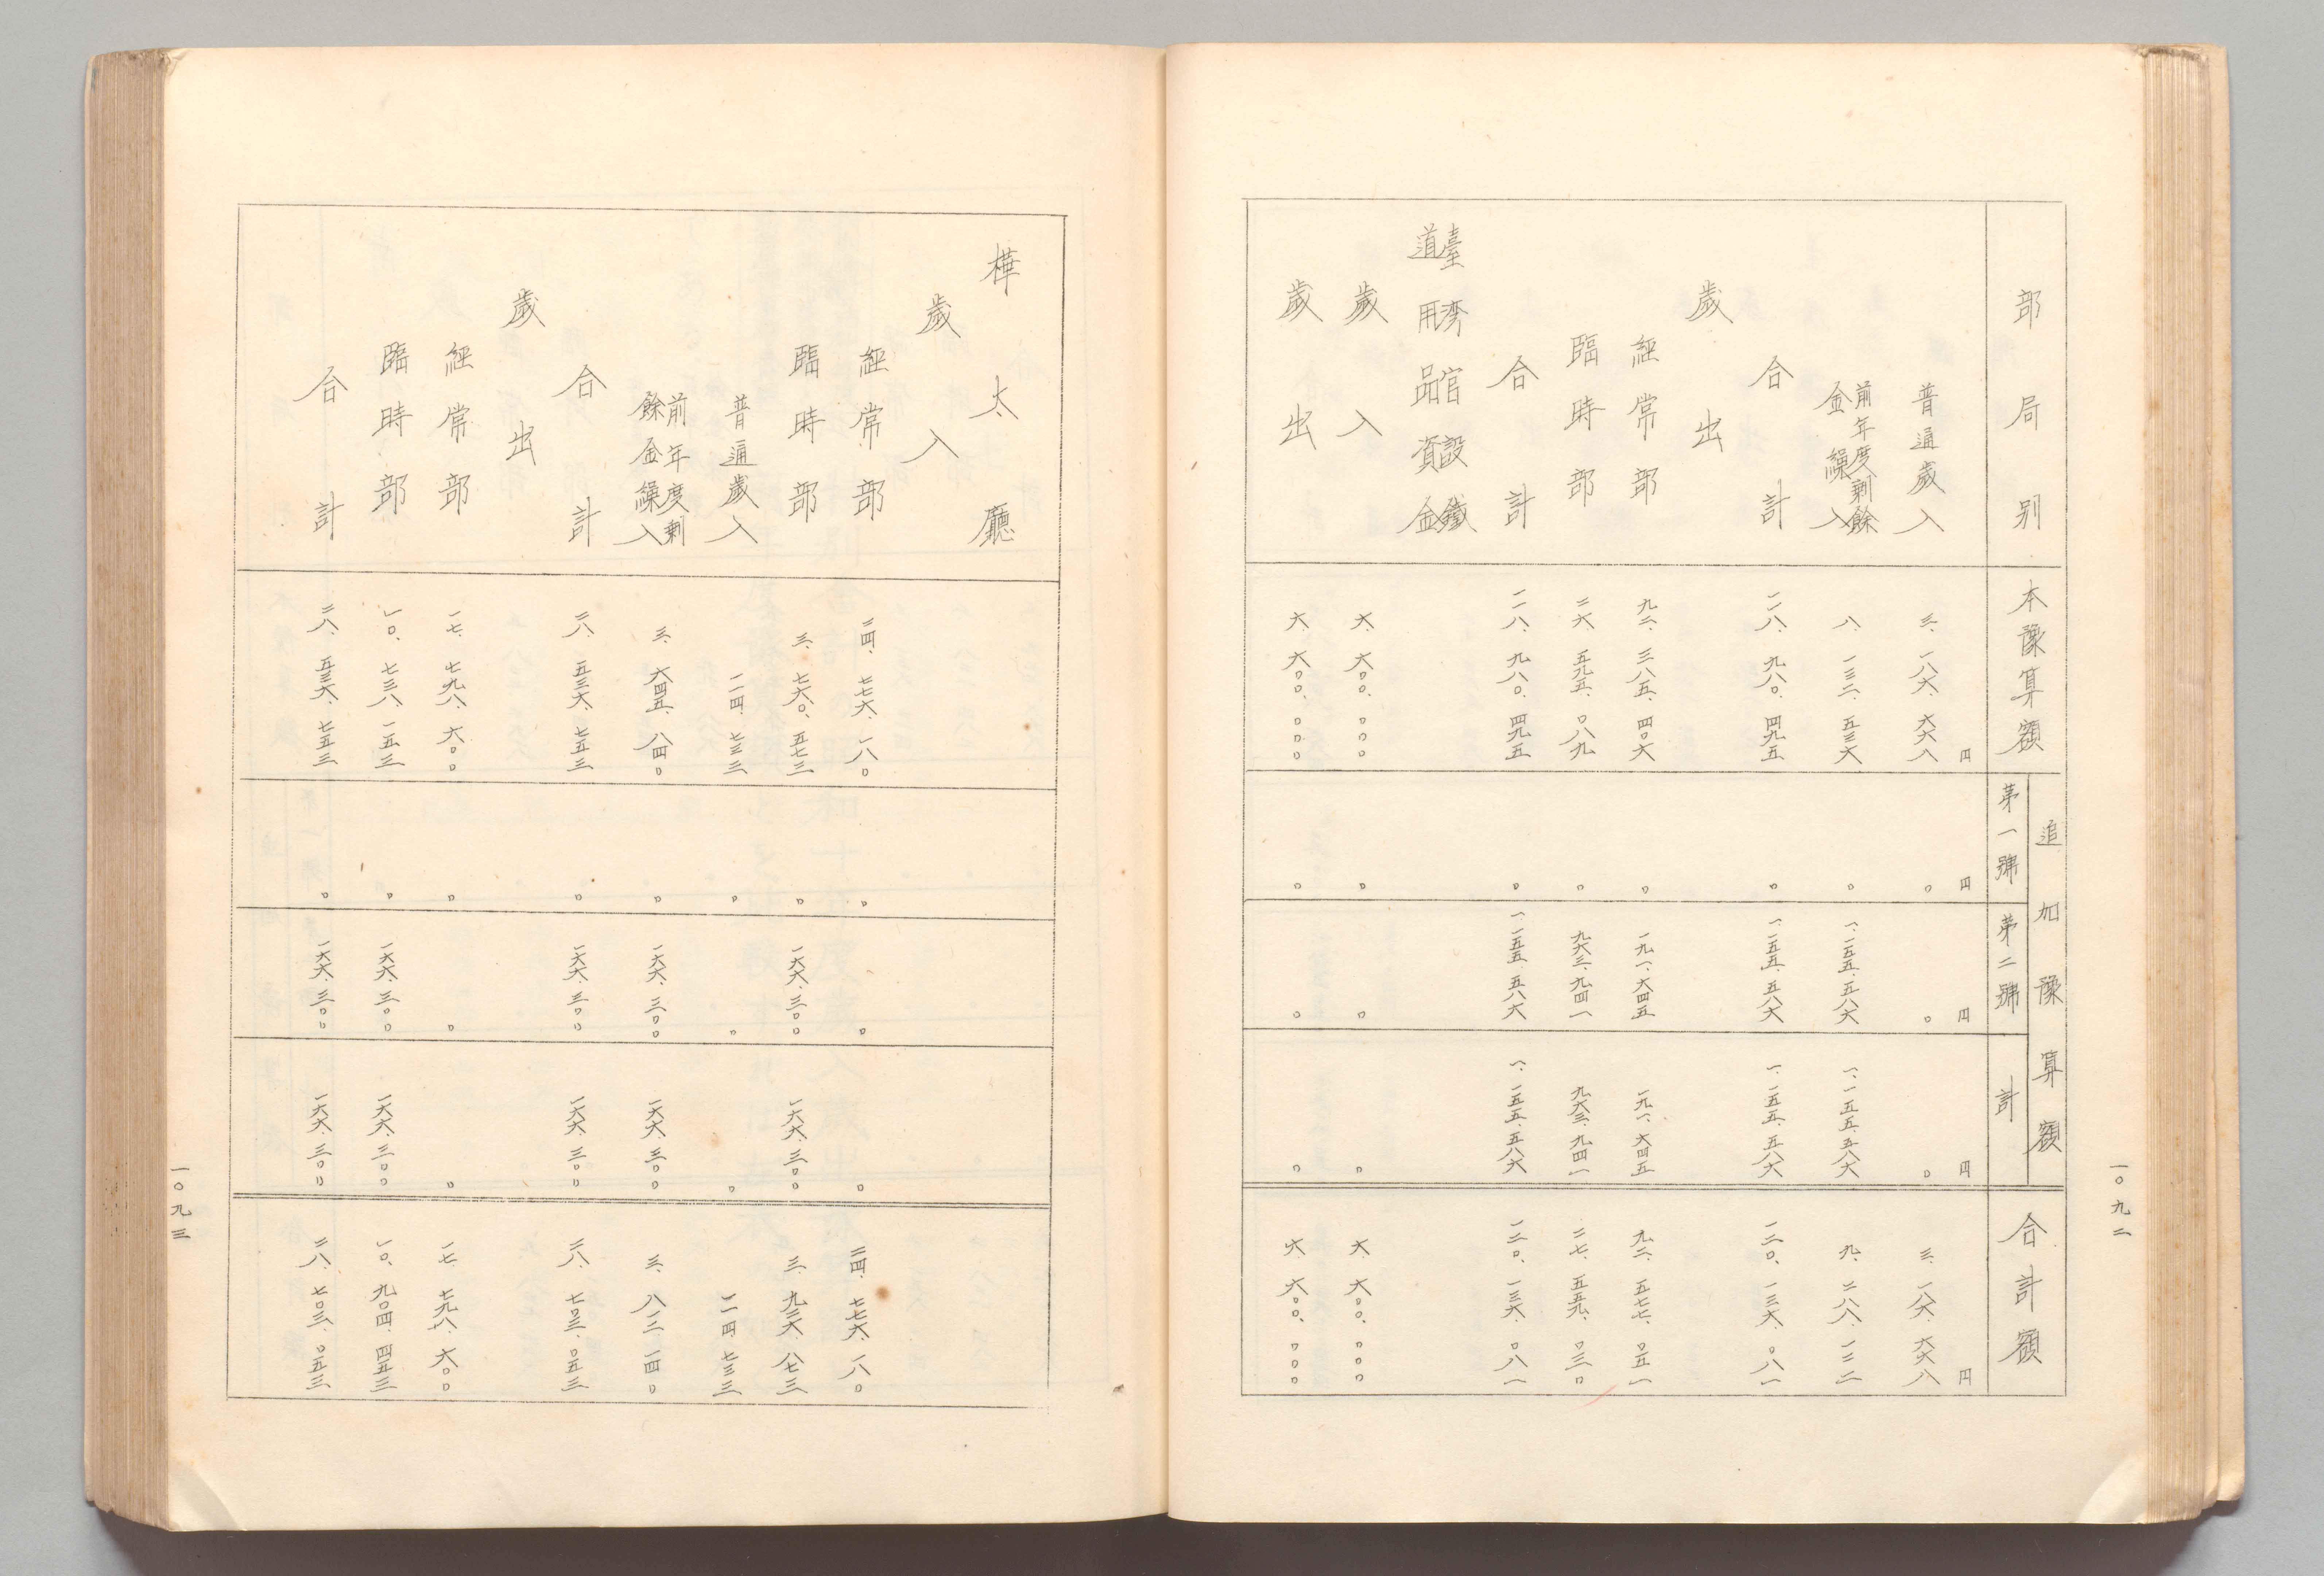 部局別 本豫算額 追加豫算額 合計額
第一號 第二號 計
円 円 円 円 円
普通歲入 三、一八六、六六八 〇 〇 〇 三、一八六、六六八
前年度剩餘
金繰入 八、一三二、五三六 〇 一、一五五、五八六 一、一五五、五八六 九、二八八、一二二
合計 一一八、九八〇、四九五 〇 一、一五五、五八六 一、一五五、五八六 一二〇、一三六、〇八一
歲出
經常部 九二、三八五、四〇六 〇 一九一、六四五 一九一、六四五 九二、五七七、〇五一
臨時部 二六、五九五、〇八九 〇 九六三、九四一 九六三、九四一 二七、五五九、〇三〇
合計 一一八、九八〇、四九五 〇 一、一五五、五八六 一、一五五、五八六 一二〇、一三六、〇八一
臺灣官設鐵
道用品資金
歲入 六、六〇〇、〇〇〇 〇 〇 〇 六、六〇〇、〇〇〇
歲出 六、六〇〇、〇〇〇 〇 〇 〇 六、六〇〇、〇〇〇
一〇九二
樺太廳
歲入
經常部 二四、七七六、一八〇 〇 〇 〇 二四、七七六、一八〇
臨時部 三、七六〇、五七三 〇 一六六、三〇〇 一六六、三〇〇 三、九二六、八七三
普通歲入 一一四、七三三 〇 〇 〇 一一四、七三三
前年度剩
餘金繰入 三、六四五、八四〇 〇 一六六、三〇〇 一六六、三〇〇 三、八一二、一四〇
合計 二八、五三六、七五三 〇 一六六、三〇〇 一六六、三〇〇 二八、七〇三、〇五三
歲出
經常部 一七、七九八、六〇〇 〇 〇 〇 一七、七九八、六〇〇
臨時部 一〇、七三八、一五三 〇 一六六、三〇〇 一六六、三〇〇 一〇、九〇四、四五三
合計 二八、五三六、七五三 〇 一六六、三〇〇 一六六、三〇〇 二八、七〇三、〇五三
一〇九三